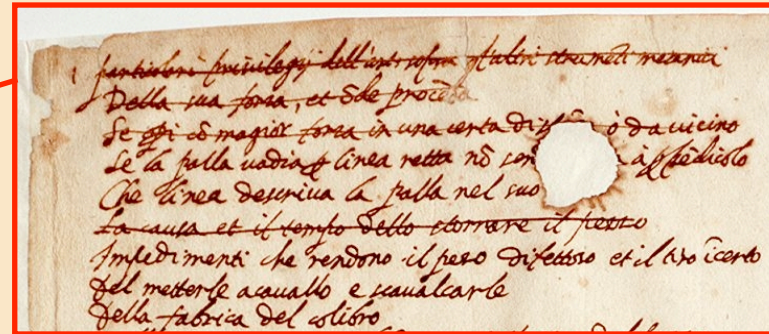 particolari privilegij dell'artig.ria sopra gl'altri strumēti mecanici
Della sua forza, et ōde proceda
Se opi cō magior forza in una certa dist ò da vicino
Se la palla vadia p linea retta nō sen à ppēdicolo
Che linea descriva la palla nel suo
La causa et il tempo dello storrare il pezzo
Impedimenti che rendono il pezo difettoso et il tiro īcerto
Del metterle a cavallo e scavalcarle
Della fabrica del colibro